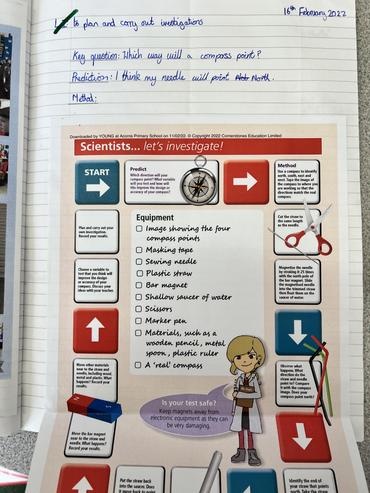 16th February 2022
to plan and carry out investigations
Key question: Which way will a compass point?
Prediction: I think my needle will point North.
Method:
Downloaded by YOUNG at Acorns Primary School on 11/02/22. © Copyright 2022 Cornerstones Education Limited
Scientists... let's investigate!
START
Predict
Which direction will your
compass point? What variable
will you test and how will
this improve the design or
accuracy of your compass?
Method
Use a compass to identify
north, south, east and
west. Tape the image of
the compass to where you
are working so that the
directions match the real
compass.
Plan and carry out your
own investigation.
Record your results.
Equipment
Image showing the four
compass points
Masking tape
Sewing needle
Plastic straw
Bar magnet
Shallow saucer of water
Scissors
Marker pen
Materials, such as a
wooden pencil, metal
spoon, plastic ruler
A 'real' compass
Cut the straw to
the same length
as the needle.
Choose a variable to
test that you think will
improve the design
or accuracy of your
compass. Discuss your
ideas with your teacher.
Magnetise the needle
by stroking it 25 times
with the north pole of
the bar magnet. Slide
the magnetised needle
into the trimmed straw
then float them on the
saucer of water.
Move other materials
near the straw and
needle, including
wood, metal and
plastic. What
happens? Record
your results.
Observe what
happens. What
direction do the
straw and needle
point to? Compare
it with the compass
image. Does your
compass point north?
Is your test safe?
Keep magnets away from
electronic equipment as they
can be very damaging.
Move the bar magnet
near the straw and
needle. What
happens? Record
your results.
Put the straw back
into the saucer. Does
it move back to point
Identify the end of
your straw that points
north. Take the straw